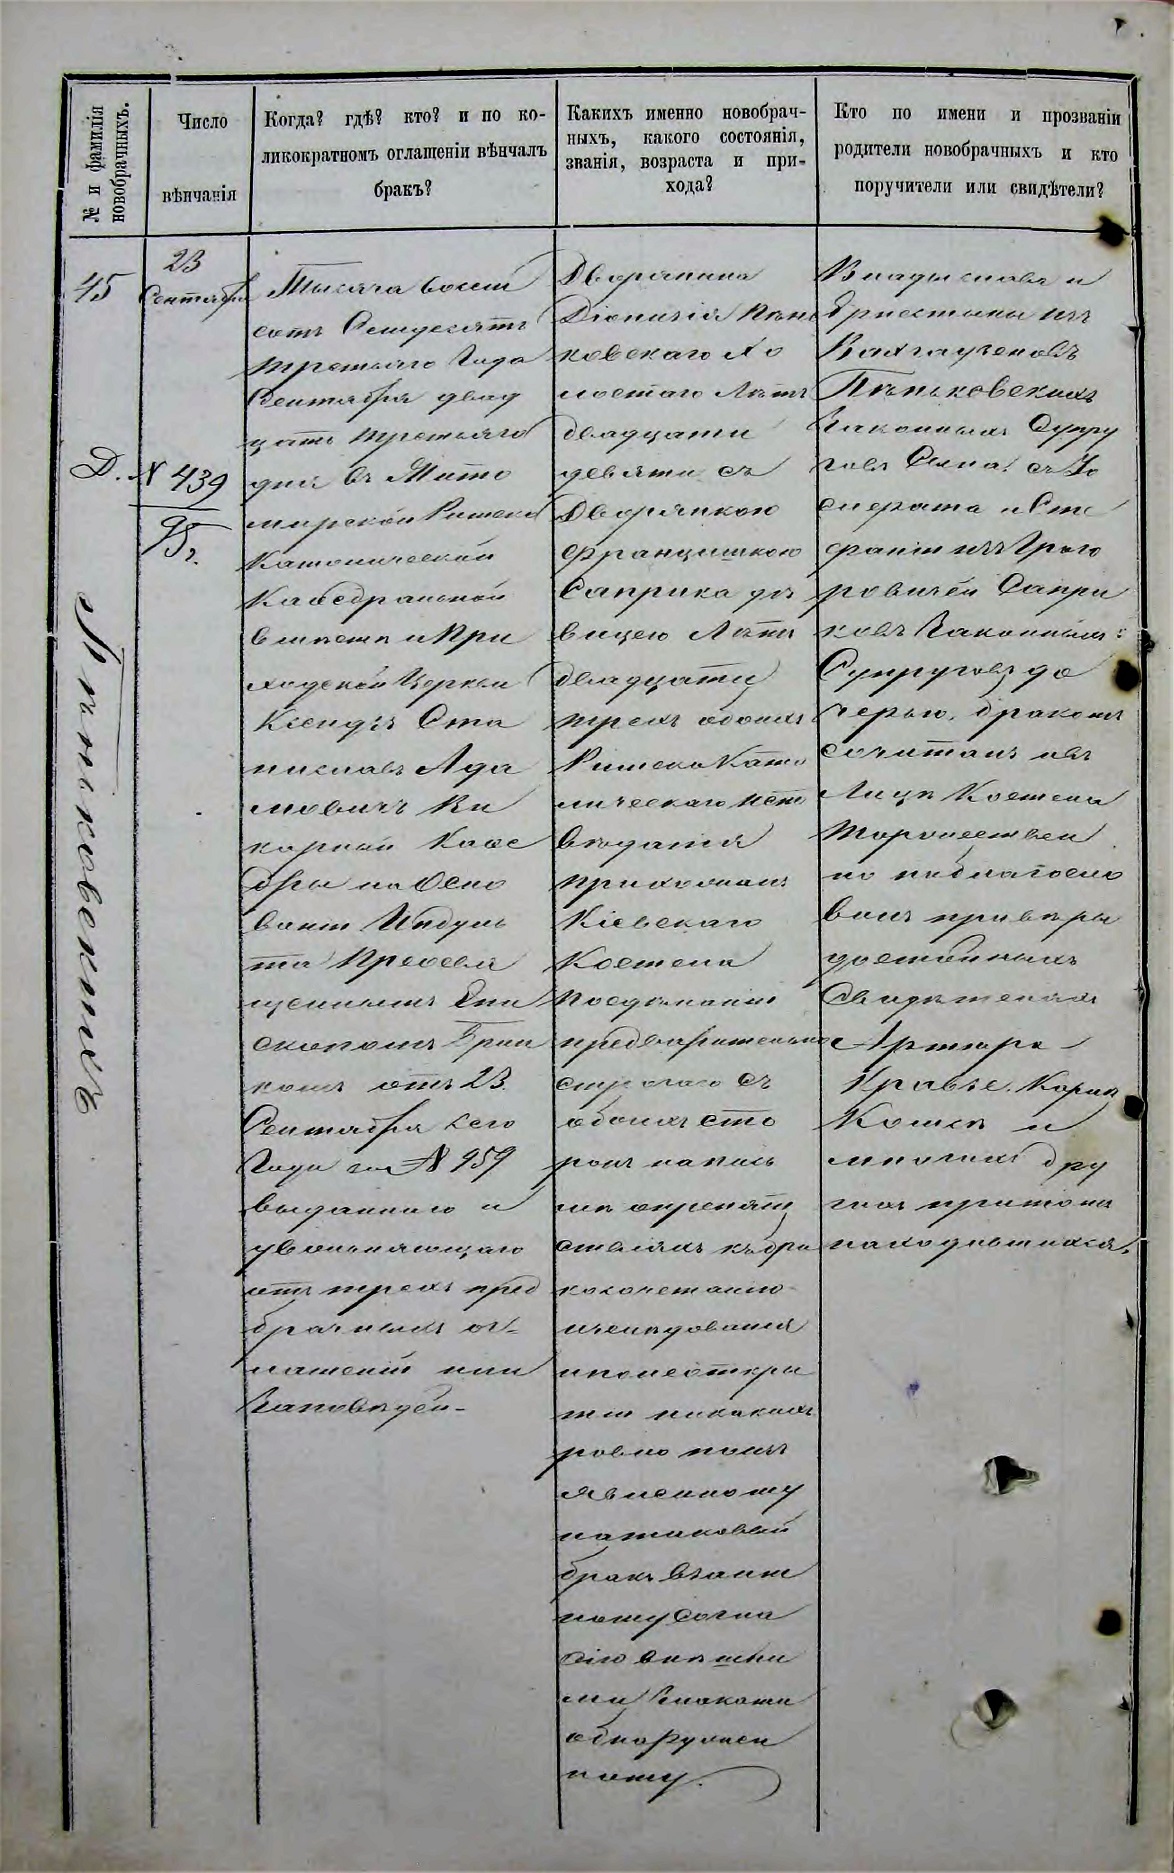 № и фамилія
новобрачныхъ.
Число
вѣнчанія
Когда? гдѣ? кто? и по ко-
ликократномъ оглашеніи вѣнчалъ
бракъ?
Какихъ именно новобрач-
ныхъ, какого состоянія,
званія, возраста и при-
хода?
Кто по имени и прозванію
родители новобрачныхъ и кто
поручители или свидѣтели?
45
Д.
Пѣньковскихъ
23
Сентября
№ 439
95 г.
Тысяча восем
сотъ Семдесятъ
третьяго Года
Сентября двад
цать третьяго
дня въ Жито
мирской Римско
Католической
Каѳедральной
и При
ходской Церкви
Ксендзъ Ста
ниславъ Ада
мовичъ Ви
карный Каѳе
дры на Осно
ваніи Индуль
та Преосвя
щеннымъ Епи
скопомъ
отъ 23
Сентября сего
Года за № 959
выданнаго и
увольняющаго
отъ трехъ пред
брачныхъ ог-
лашеній или
Заповѣдей-
Дворянина
Діонизія Пѣнь
ковскаго Хо
лостаго Лѣтъ
двадцати
девяти съ
Дворянкою
Францишкою
Саприка дѣ
вицею Лѣтъ
двадцати
трехъ обоихъ
Римско Като
лическаго Испо
вѣданія
прихожанъ
Кіевскаго
Костела
По сдѣланіи
предварительно
строгаго съ
обоихъ сто
ронъ на пись
мѣ о препят
ствіяхъ къ бра
косочетанію
изслѣдованія
и по неоткры
тіи никакихъ
ровно
явленному
на таковый
бракъ взаим
ному Согла
сію внѣшни
ми Знаками
обнаружен
ному.
Владислава и
Эрнестины изъ
Вахгаузеновъ
Пѣньковскихъ
Законныхъ Супру
говъ Сына, съ
и Сте
фаніи изъ Григо
ровичей Сапри
ковъ Законныхъ
Супруговъ до
черью, бракомъ
сочиталъ и въ
Лицѣ Костела
Торжествен
но благосло
вилъ при вѣры
достойныхъ
Свидѣтеляхъ
Артура
и
многихъ дру
гихъ при томъ
находившихся.